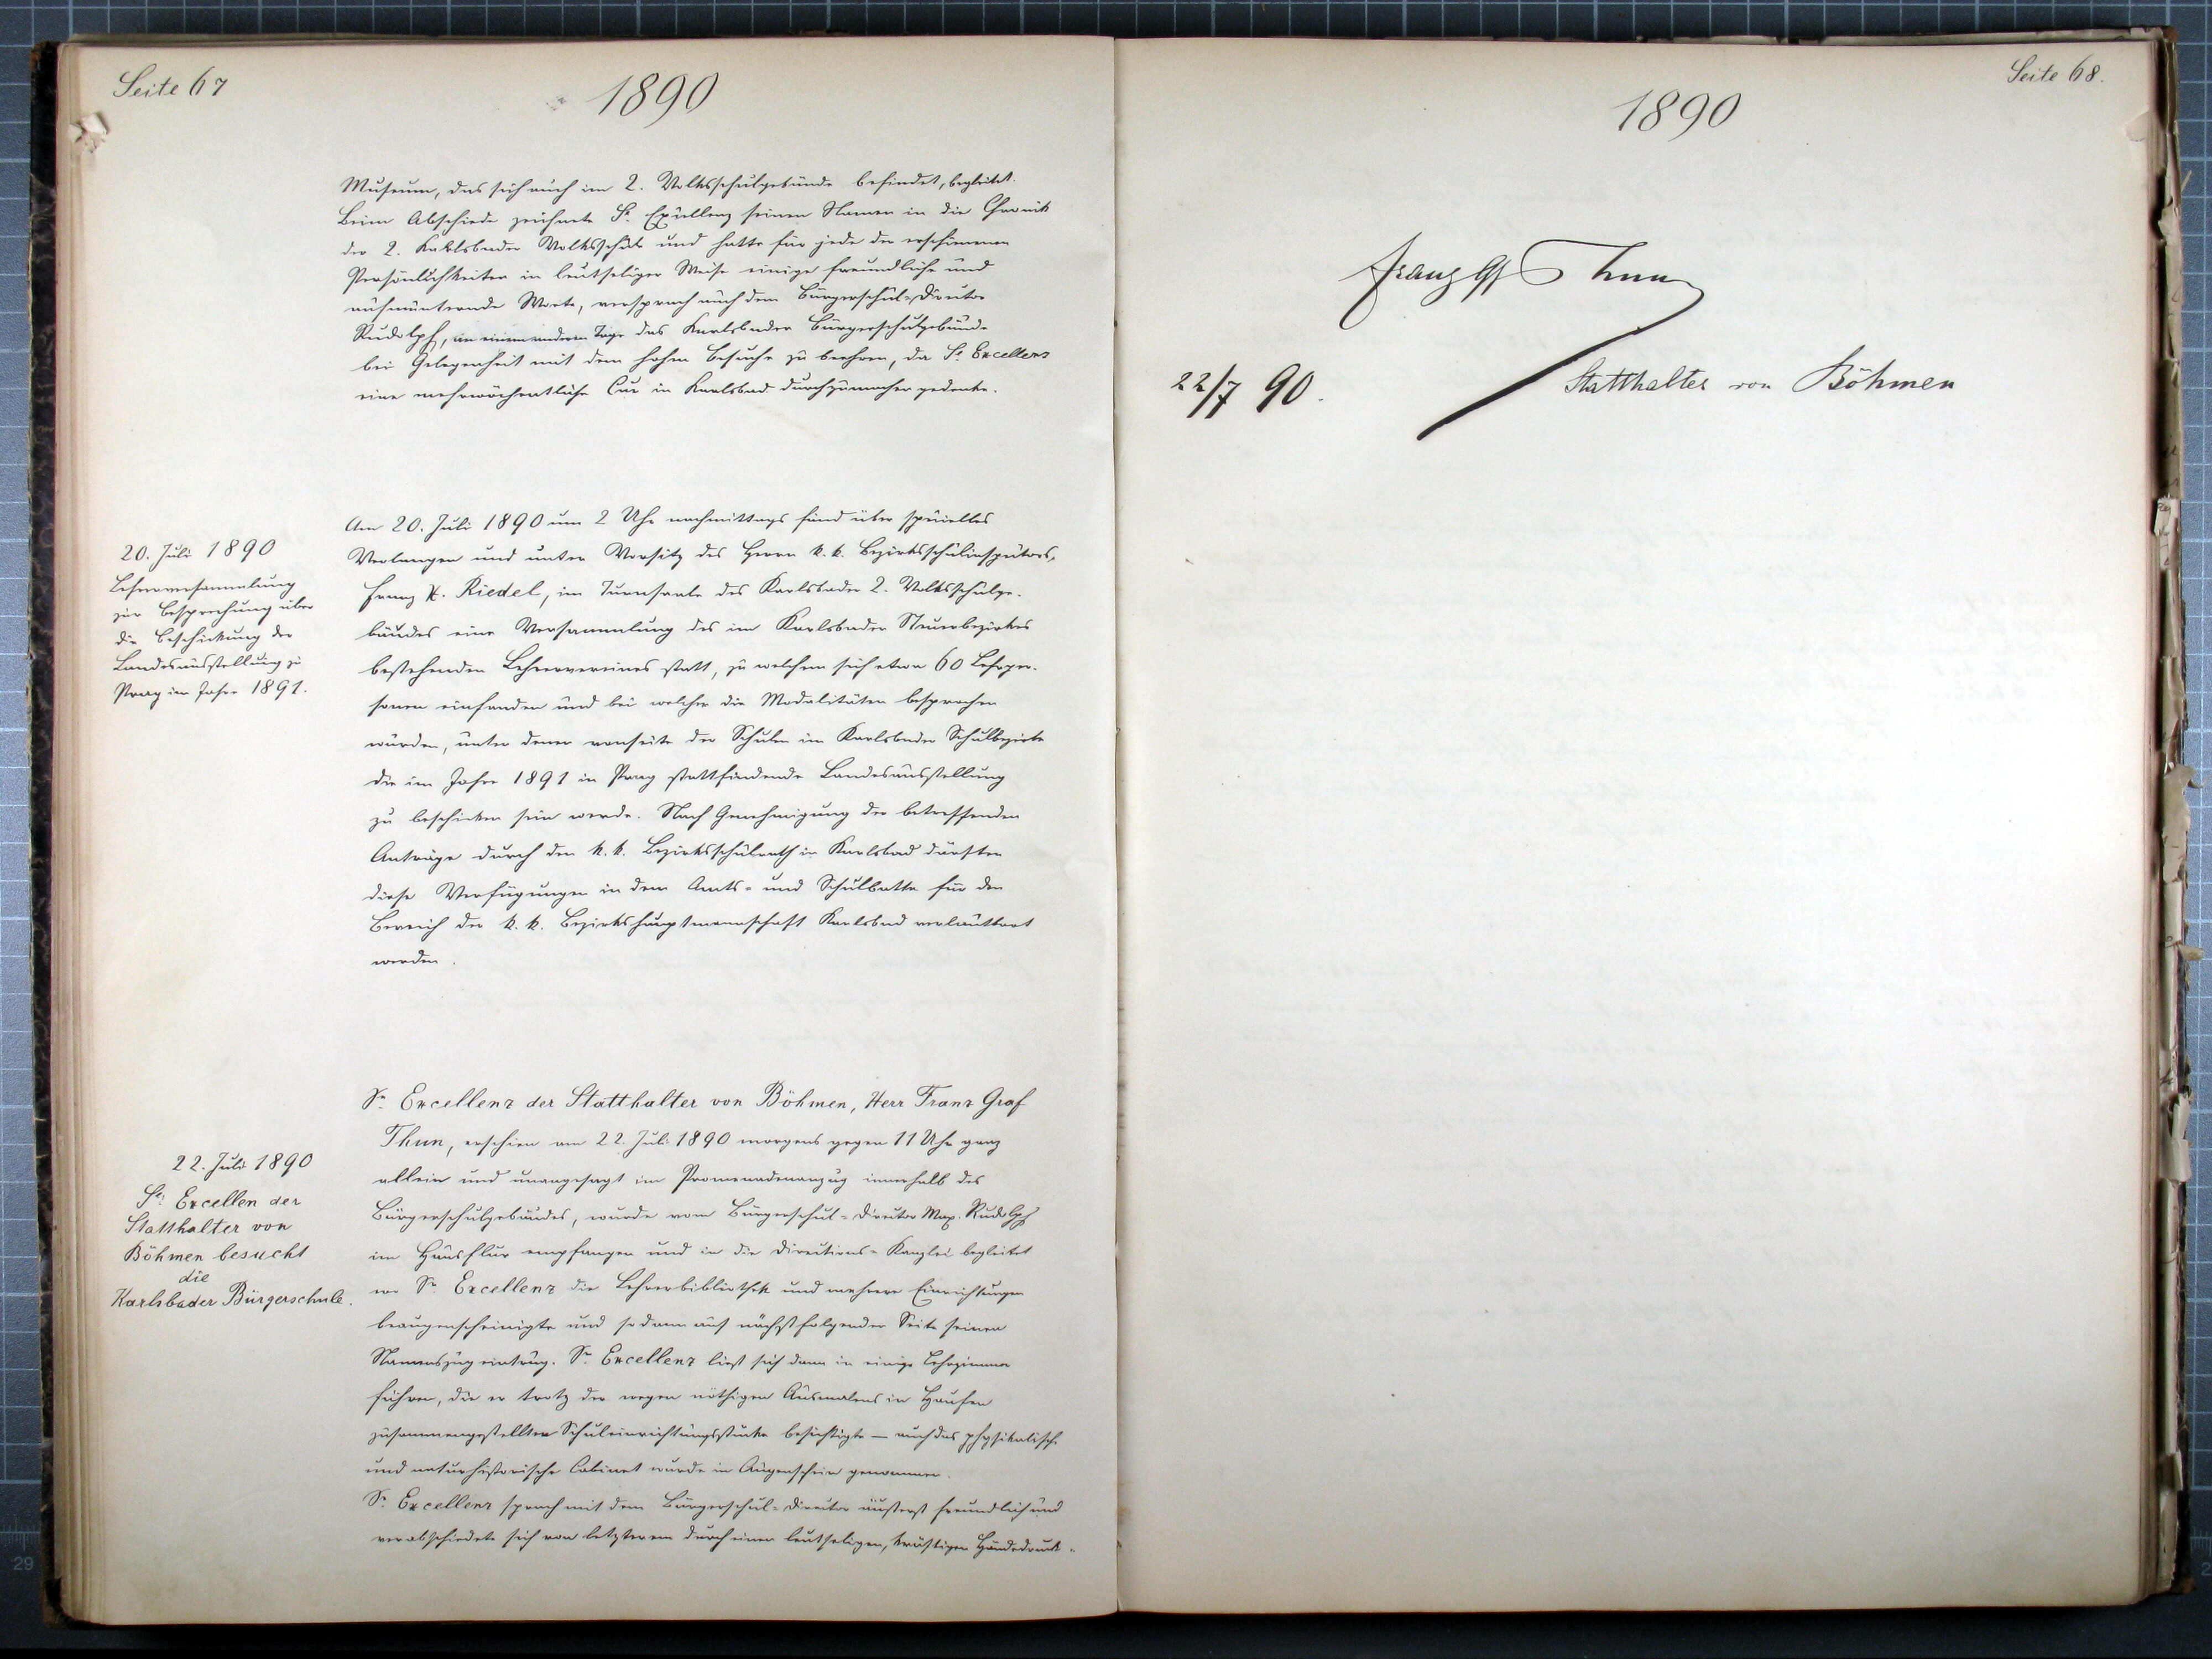 Seite 67
1890
Museum, das sich auch im 2. Volksschulgebäude befindet, begleitet.
Beim Abschiede zeichnete Sr. Excellenz seinen Namen in die Chronik
der 2. Karlsbader Volksschule und hatte für jede der erschienenen
Persönlichkeiten in leutseliger Weise einige freundliche und
aufmunternde Worte, versprach auch dem Bürgerschul-Director
Rudolph, an einem anderen Tage das Karlsbader Bürgerschulgebäude
bei Gelegenheit mit dem hohen Besuche zu beehren, da Sr. Excellenz
eine mehrwöchentliche Cur in Karlsbad durchzumachen gedenke.
20. Juli 1890
Lehrerversammlung
zur Besprechung über
die Beschickung der
Landesausstellung zu
Prag im Jahre 1891.
Am 20. Juli 1890 um 2 Uhr nachmittags fand über specielles
Verlangen und unter Vorsitz des Herrn k. k. Bezirksschulinspectors,
Franz X. Riedel, im Turnsaale des Karlsbader 2. Volksschulge-
bäudes eine Versammlung des im Karlsbader Steuerbezirkes
bestehenden Lehrervereines statt, zu welchem sich etwa 60 Lehrper-
sonen einfanden und bei welcher die Modalitäten besprochen
wurden, unter denen vonseite der Schulen im Karlsbader Schulbezirke
die im Jahre 1891 in Prag stattfindende Landesausstellung
zu beschicken sein werde. Nach Genehmigung der betreffenden
Anträge durch den k. k. Bezirksschulrath in Karlsbad dürften
diese Verfügungen in dem Amts- und Schulblatte für den
Bereich der k. k. Bezirkshauptmannschaft Karlsbad verlautbart
werden.
22. Juli 1890
Sr. Excellen der
Statthalter von
Böhmen besucht
die
Karlsbader Bürgerschule.
Sr. Excellenz der Statthalter von Böhmen, Herr Franz Graf
Thun, erschien am 22. Juli 1890 morgens gegen 11 Uhr ganz
allein und unangesagt im Promenadenanzug innerhalb des
Bürgerschulgebäudes, wurde vom Bürgerschul-Director Max. Rudolph
im Hausflur empfangen und in die Directions-Kanzlei begleitet
wo Sr. Excellenz die Lehrerbibliothek und mehrere Einrichtungen
beaugenscheinigte und sodann auf nächstfolgender Seite seinen
Namenszug eintrug. Sr. Excellenz ließ sich dann in einige Lehrzimmer
führen, die er trotz der wegen nöthigen Ausmalens in Haufen
zusammengestellten Schuleinrichtungsstücke besichtigte — auch das physikalische
und naturhistorische Cabinet wurde in Augenschein genommen.
Sr. Excellenz sprach mit dem Bürgerschul-Director äußerst freundlich und
verabschiedete sich von letzterem durch einen leutseligen, kräftigen Händedruck.
Seite 68.
1890
Franz Gf Thun
22/7 90.
Statthalter von Böhmen